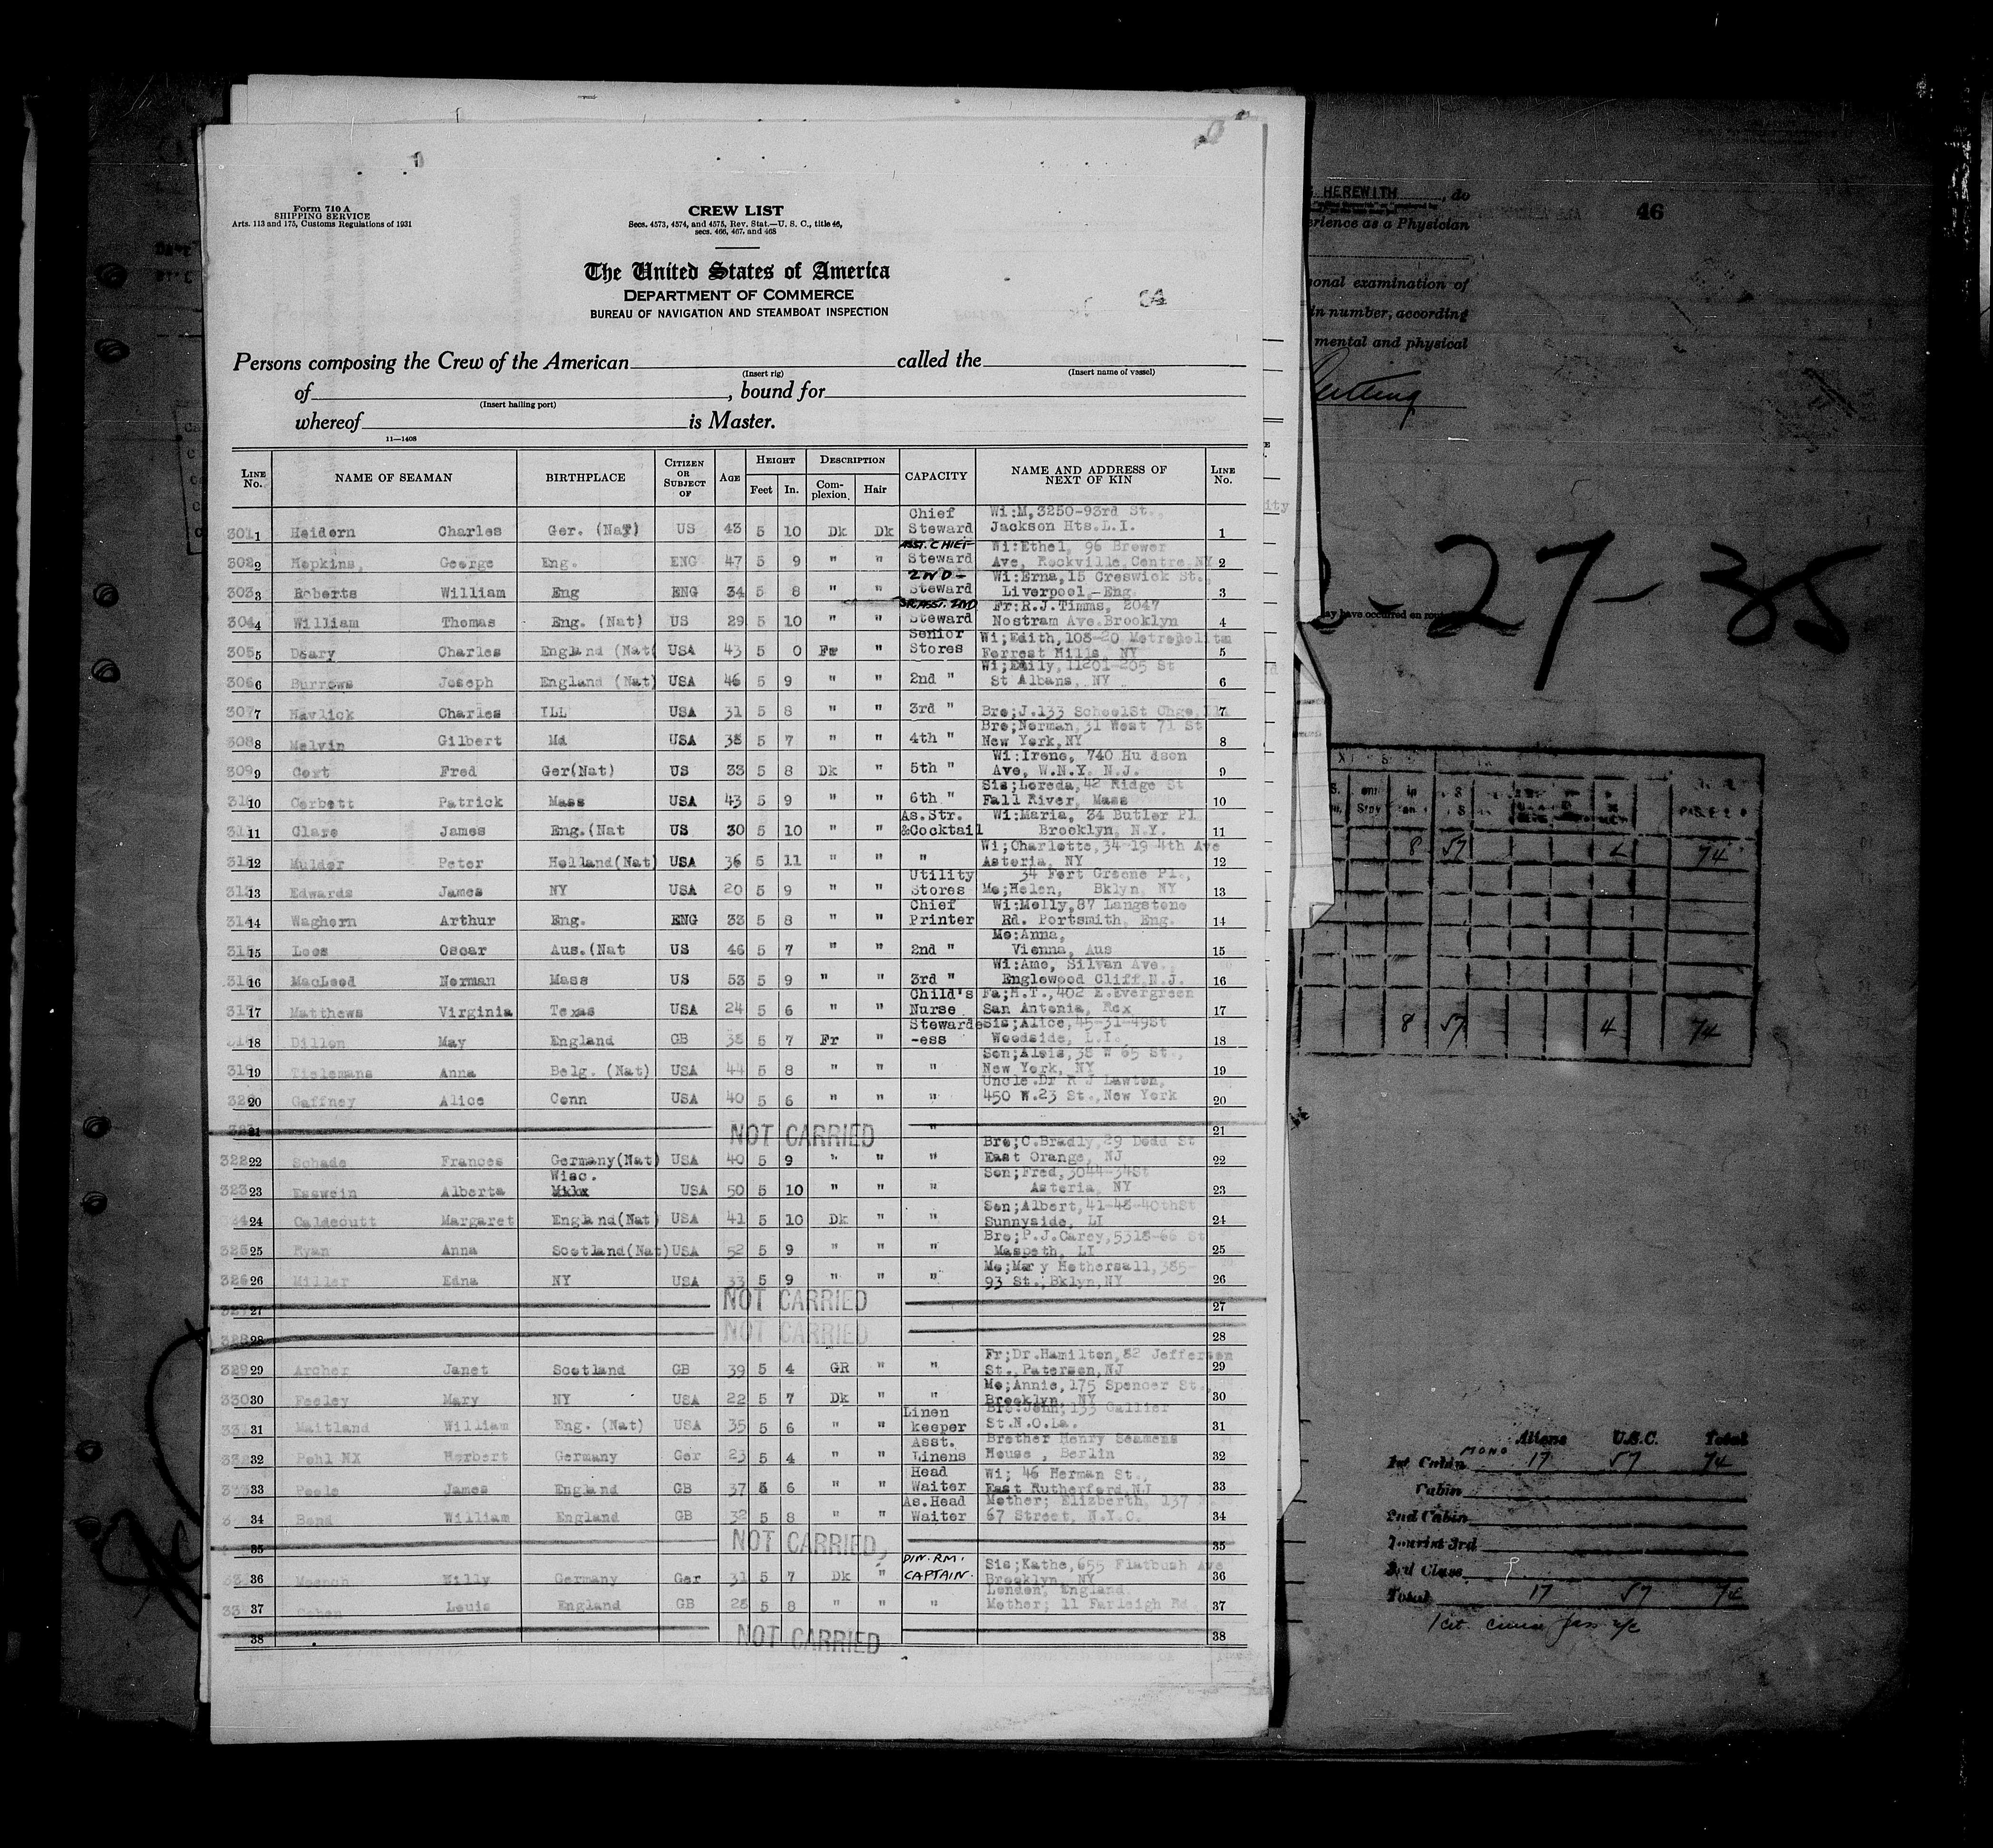 Form 710 A
SHIPPING SERVICE
Arts. 113 and 175, Customs Regulations of 1931
CREW LIST
Secs. 4573, 4574, and 4575, Rev. Stat.—U. S. C., title 46,
secs. 466, 467, and 468
The United States of America
DEPARTMENT OF COMMERCE
BUREAU OF NAVIGATION AND STEAMBOAT INSPECTION
Persons composing the Crew of the American called the
(Insert rig) (Insert name of vessel)
of , bound for
(Insert hailing port)
whereof is Master.
11—1408
LINE No. NAME OF SEAMAN BIRTHPLACE CITIZEN OR SUBJECT OF AGE HEIGHT Feet In. DESCRIPTION Complexion Hair CAPACITY NAME AND ADDRESS OF NEXT OF KIN LINE No.
301 1 Heidorn Charles Ger. (Nat) US 43 5 10 Dk Dk Chief Steward Wi:M,3250-93rd St., Jackson Hts.L.I. 1
302 2 Hopkins, George Eng. ENG 47 5 9 " " ASST. CHIEF Steward Wi:Ethel, 96 Brower Ave, Rockville Centre NY 2
303 3 Roberts William Eng ENG 34 5 8 " " 2ND - Steward Wi:Erna,15 Creswick St., Liverpool-Eng. 3
304 4 William Thomas Eng. (Nat) US 29 5 10 " " Steward Fr:R.J.Timms, 2047 Nostram Ave.Brooklyn 4
305 5 Deary Charles England (Nat( USA 43 5 0 Fr " Senior Stores Wi;Edith,108-20 Metropolitan Forrest Hills, NY 5
306 6 Burrows Joseph England (Nat) USA 46 5 9 " " 2nd " Wi;Emily, 11201-205 St St Albans, NY 6
307 7 Havlick Charles ILL USA 31 5 8 " " 3rd " Bro;J.133 SchoolSt Chge, Ill 7
308 8 Melvin Gilbert Md USA 38 5 7 " " 4th " Bro;Norman,31 West 71 St New York,NY 8
309 9 Cort Fred Ger(Nat) US 33 5 8 Dk " 5th " Wi:Irene, 740 Hu dson Ave, W.N.Y. N.J. 9
310 10 Corbett Patrick Mass USA 43 5 9 " " 6th " Sis;Loreda,42 Ridge St Fall River, Mass 10
311 11 Clare James Eng.(Nat US 30 5 10 " " As.Str. &Cocktail Wi:Maria, 34 Butler Pl Brooklyn, N.Y. 11
312 12 Mulder Peter Holland(Nat) USA 36 5 11 " " " Wi;Charlotte,34-19 4th Ave Astoria, NY 12
313 13 Edwards James NY USA 20 5 9 " " Utility Stores 34 Fort Greene Pl., Mo;Helen, Bklyn, NY 13
314 14 Waghorn Arthur Eng. ENG 33 5 8 " " Chief Printer Wi:Molly,87 Langstone Rd. Portsmith, Eng. 14
315 15 Loos Oscar Aus.(Nat US 46 5 7 " " 2nd " Mo:Anna, Vienna, Aus 15
316 16 MacLeod Norman Mass US 53 5 9 " " 3rd " Wi:Amo, Silvan Ave. Englewood Cliff,N.J. 16
317 17 Matthews Virginia Texas USA 24 5 6 " " Child's Nurse Fa;H.T.,402 E.Evergreen San Antonia, Rex 17
318 18 Dillon May England GB 38 5 7 Fr " Steward -ess Sis;Alice,45-31-49St Woodside, L.I. 18
319 19 Tielemans Anna Belg. (Nat) USA 44 5 8 " " " Son;Alois,38 W 65 St., New York, NY 19
320 20 Gaffney Alice Conn USA 40 5 6 " " " Uncle.Dr R J Lawton, 450 W.23 St.,New York 20
321 21 NOT CARRIED " 21
322 22 Schade Frances Germany(Nat) USA 40 5 9 " " " Bro;C.Bradly,29 Dodd St East Orange, NJ 22
323 23 Esswein Alberta Wisc. USA 50 5 10 " " " Son;Fred,3044-34St Astoria, NY 23
324 24 Caldecutt Margaret England(Nat) USA 41 5 10 Dk " " Son;Albert,41-48-40thSt Sunnyside, LI 24
325 25 Ryan Anna Scotland(Nat) USA 52 5 9 " " " Bro;P.J.Carey,5318-66 St Maspeth, LI 25
326 26 Miller Edna NY USA 33 5 9 " " " Mo;Mary Hothersall,385- 93 St., Bklyn,NY 26
327 27 NOT CARRIED 27
328 28 NOT CARRIED 28
329 29 Archer Janet Scotland GB 39 5 4 GR " " Fr;Dr.Hamilton,82 Jefferson St., Paterson,NJ 29
330 30 Feeley Mary NY USA 22 5 7 Dk " " Mo;Annie,175 Spencer St., Brooklyn, NY 30
331 31 Maitland William Eng. (Nat) USA 35 5 6 " " Linen keeper Bro:John,133 Gallier St.N.O.La. 31
332 32 Pohl NX Herbert Germany Ger 23 5 4 " " Asst. Linens Brother Henry Seamens House , Berlin 32
333 33 Poole James England GB 37 5 6 " " Head Waiter Wi; 46 Herman St., East Rutherford,NJ 33
34 Bond William England GB 32 5 8 " " As.Head Waiter Mother; Elizberth, 137 67 Street, N.Y.C. 34
35 NOT CARRIED, 35
36 Willy Germany Ger 31 5 7 Dk " DIN. RM. CAPTAIN. Sis;Kathe,655 Flatbush Ave Brooklyn, NY 36
37 Cohen Louis England GB 28 5 8 " " " London, England. Mother; 11 Farleigh Rd. 37
38 NOT CARRIED 38
HEREWITH , do
46
erience as a Physician
onal examination of
in number, according
mental and physical
-27-35
may have occurred en route
8 57 74
8 57 4 74
Aliens U.S.C. Total
1st Cabin MONO 17 57 74
Cabin
2nd Cabin
Tourist 3rd
3rd Class
Total 17 57 74